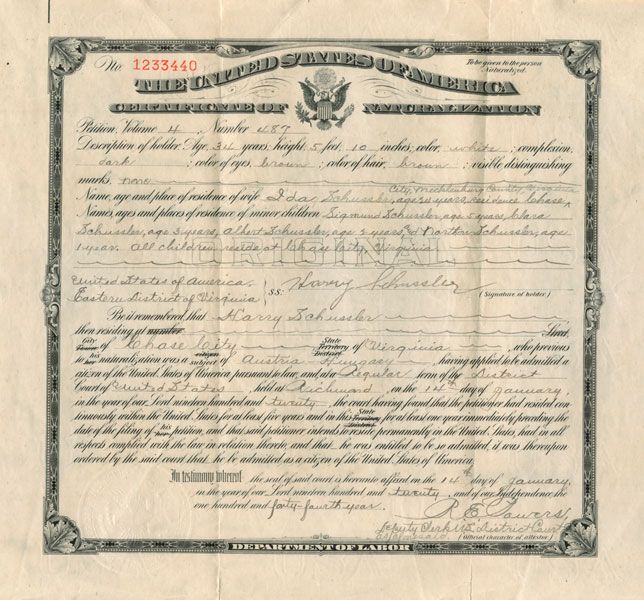 No. 1233440
To be given to the person
Naturalized.
THE UNITED STATES OF AMERICA
CERTIFICATE OF NATURALIZATION
Petition, Volume 4, Number 487
Description of holder: Age, 34 years; height, 5 feet, 10 inches; color, white; complexion,
dark; color of eyes, brown; color of hair, brown; visible distinguishing
marks, none
City, Mecklenburg County, Virginia
Name, age and place of residence of wife Ida Schussler, age years, residence Chase
Names, ages and places of residence of minor children Sigmund Schussler, age 5 years, Clara
Schussler, age 3 years, Albert Schussler, age 2 years, Schussler, age
1 year. All children reside at Chase City, Virginia
ORIGINAL
United States of America,
Eastern District of Virginia } S.S: Harry Schussler
(Signature of holder)
Be it remembered, that Harry Schussler
then residing at number Street,
City of Chase City State Territory District of Virginia, who previous
to his naturalization was a citizen subject of Austria Hungary, having applied to be admitted a
citizen of the United States of America, pursuant to law, and, at a Regular term of the District
Court of United States held at Richmond on the 14th day of January
in the year of our Lord nineteen hundred and twenty the court having found that the petitioner had resided con-
tinuously within the United States for at least five years and in this State Territory District for at least one year immediately preceding the
date of the filing of his petition, and that said petitioner intends to reside permanently in the United States, had in all
respects complied with the law in relation thereto, and that he was entitled to be so admitted, it was thereupon
ordered by the said court that he be admitted as a citizen of the United States of America.
In testimony whereof the seal of said court is hereunto affixed on the 14th day of January,
in the year of our Lord nineteen hundred and twenty, and of our Independence the
one hundred and forty-fourth year.
R. E. Powers
Deputy Clerk U.S. District Court
(Official character of attestor)
DEPARTMENT OF LABOR